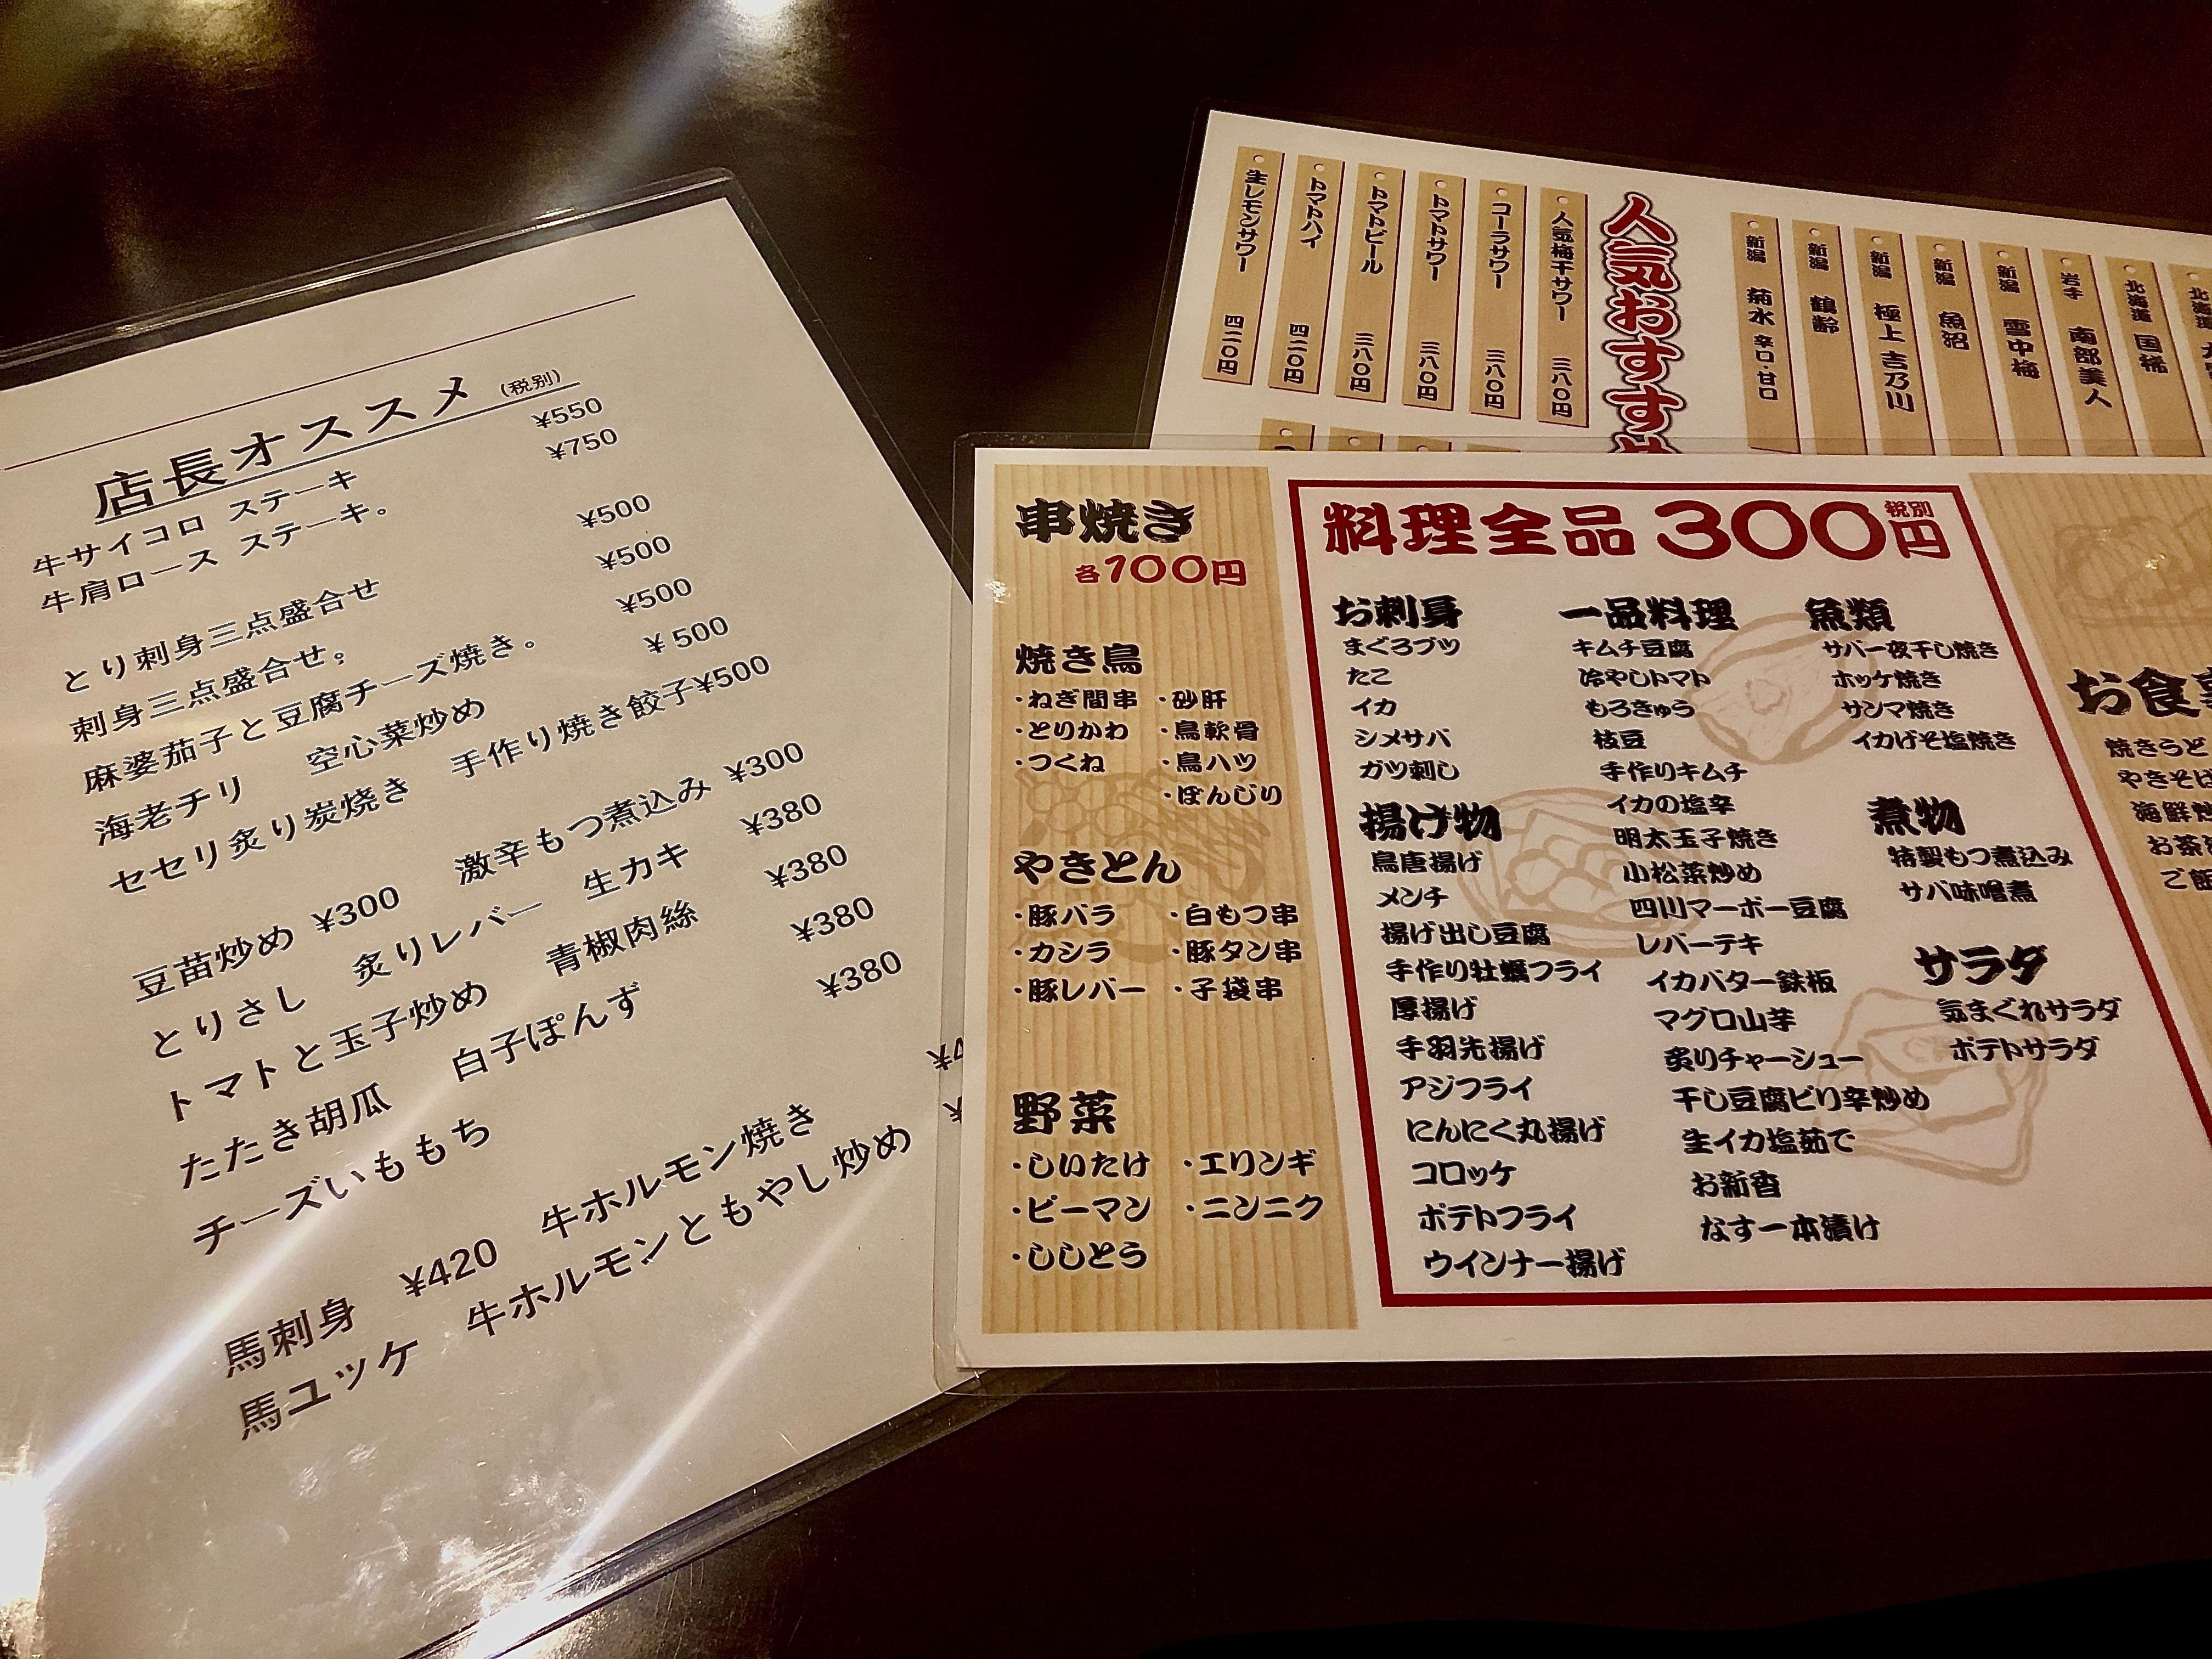 店長オススメ (税別)
牛サイコロ ステーキ ¥550
牛肩ロース ステーキ。 ¥750
とり刺身三点盛合せ ¥500
刺身三点盛合せ。 ¥500
麻婆茄子と豆腐チーズ焼き。 ¥500
海老チリ 空心菜炒め ¥500
セセリ炙り炭焼き 手作り焼き餃子¥500
豆苗炒め ¥300 激辛もつ煮込み ¥300
とりさし 炙りレバー 生カキ ¥380
トマトと玉子炒め 青椒肉絲 ¥380
たたき胡瓜 白子ぽんず ¥380
チーズいももち ¥380
馬刺身 ¥420 牛ホルモン焼き ¥4
馬ユッケ 牛ホルモンともやし炒め ¥
人気おすすめ
人気梅干サワー 三八〇円
コーラサワー 三八〇円
トマトサワー 三八〇円
トマトビール 三八〇円
トマトハイ 四二〇円
生レモンサワー 四二〇円
北海道
北海道 国稀
岩手 南部美人
新潟 雪中梅
新潟 魚沼
新潟 極上 吉乃川
新潟 鶴齢
新潟 菊水 辛口・甘口
串焼き
各100円
焼き鳥
・ねぎ間串 ・砂肝
・とりかわ ・鳥軟骨
・つくね ・鳥ハツ
・ぼんじり
やきとん
・豚バラ ・白もつ串
・カシラ ・豚タン串
・豚レバー ・子袋串
野菜
・しいたけ ・エリンギ
・ピーマン ・ニンニク
・ししとう
料理全品300円 税別
お刺身
まぐろブツ
たこ
イカ
シメサバ
ガツ刺し
揚げ物
鳥唐揚げ
メンチ
揚げ出し豆腐
手作り牡蠣フライ
厚揚げ
手羽先揚げ
アジフライ
にんにく丸揚げ
コロッケ
ポテトフライ
ウインナー揚げ
一品料理
キムチ豆腐
冷やしトマト
もろきゅう
枝豆
手作りキムチ
イカの塩辛
明太玉子焼き
小松菜炒め
四川マーボー豆腐
レバーテキ
イカバター鉄板
マグロ山芋
炙りチャーシュー
干し豆腐ピリ辛炒め
生イカ塩茹で
お新香
なす一本漬け
魚類
サバ一夜干し焼き
ホッケ焼き
サンマ焼き
イカげそ塩焼き
煮物
特製もつ煮込み
サバ味噌煮
サラダ
気まぐれサラダ
ポテトサラダ
お食事
焼きうど
やきそば
海鮮炒
お茶
ご飯